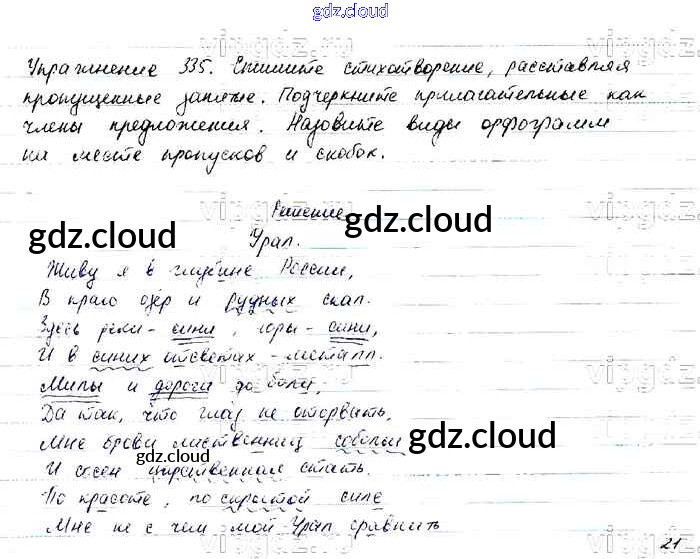 gdz.cloud
Упражнение 335. Спишите стихотворение, расставляя
пропущенные запятые. Подчеркните прилагательные как
члены предложения. Назовите виды орфограмм
на месте пропусков и скобок.
Решение
gdz.cloud
gdz.cloud
Урал.
Живу я в глубине России,
В краю озёр и рудных скал.
Здесь реки - сини, горы - сини,
И в синих отсветах - металл.
Милы и дороги до боли,
Да так, что глаз не оторвать,
Мне брови лиственниц собольи
gdz.cloud
И сосен царственная стать.
gdz.cloud
По красоте, по скрытой силе
Мне не с чем мой Урал сравнить
21